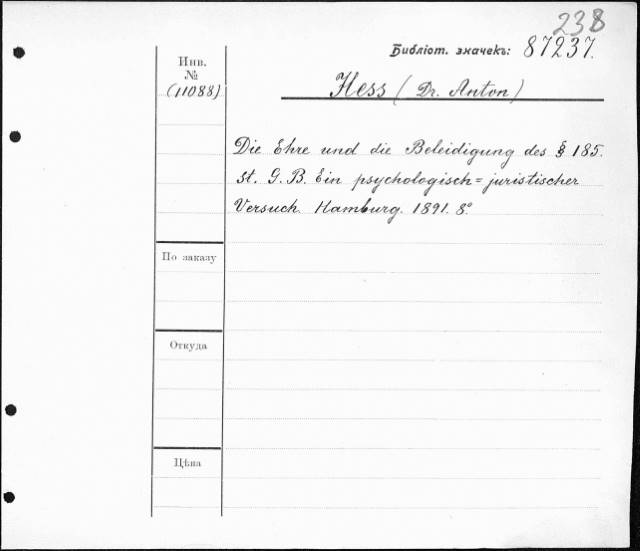 238
Библіот. значекъ: 87237.
Инв.
№
(11088)
Hess (Dr. Anton)
Die Ehre und die Beleidigung des § 185.
St. G. B. Ein psychologisch=juristischer
Versuch. Hamburg. 1891. 8°
По заказу
Откуда
Цѣна